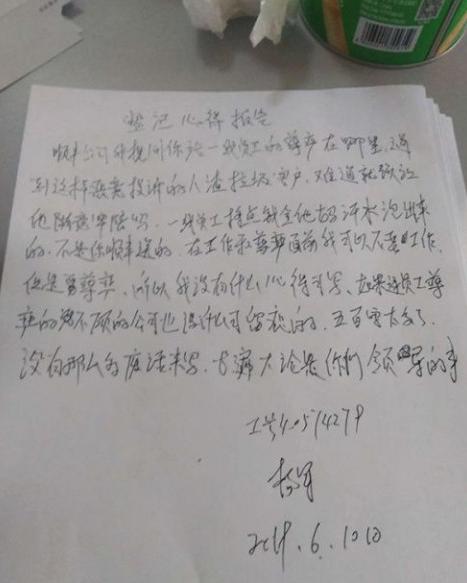 笔记心得报告
顺丰公司我想问你话一线员工的尊严在哪里,遇
到这样恶意投诉的人渣垃圾客户,难道就该让
他随意宰陪吗,一线员工挣点钱全他妈汗水泡出来
的,不是你顺丰送的,在工作和尊严面前我可以不要工作
但是要尊严,所以我没有什么心得可写,如果连员工尊
严的都不顾的公司也没什么可留恋的,五百字太多了,
没有那么多废话来写,长篇大论是你们领导的事
工号40514279
2019.6.10